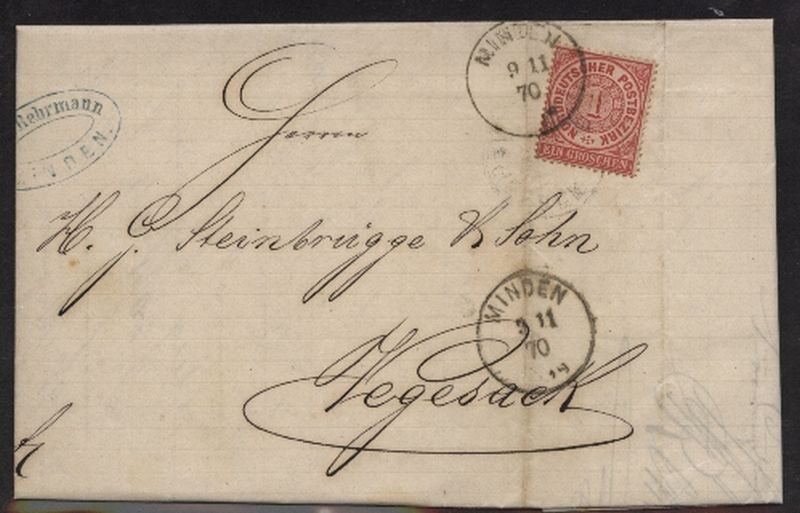 MINDEN
9 11
70
NORDDEUTSCHER POSTBEZIRK
1
EIN GROSCHEN
Rehrmann
MINDEN.
Herrn
H. J. Steinbrügge & Sohn
MINDEN
9 11
70
Vegesack